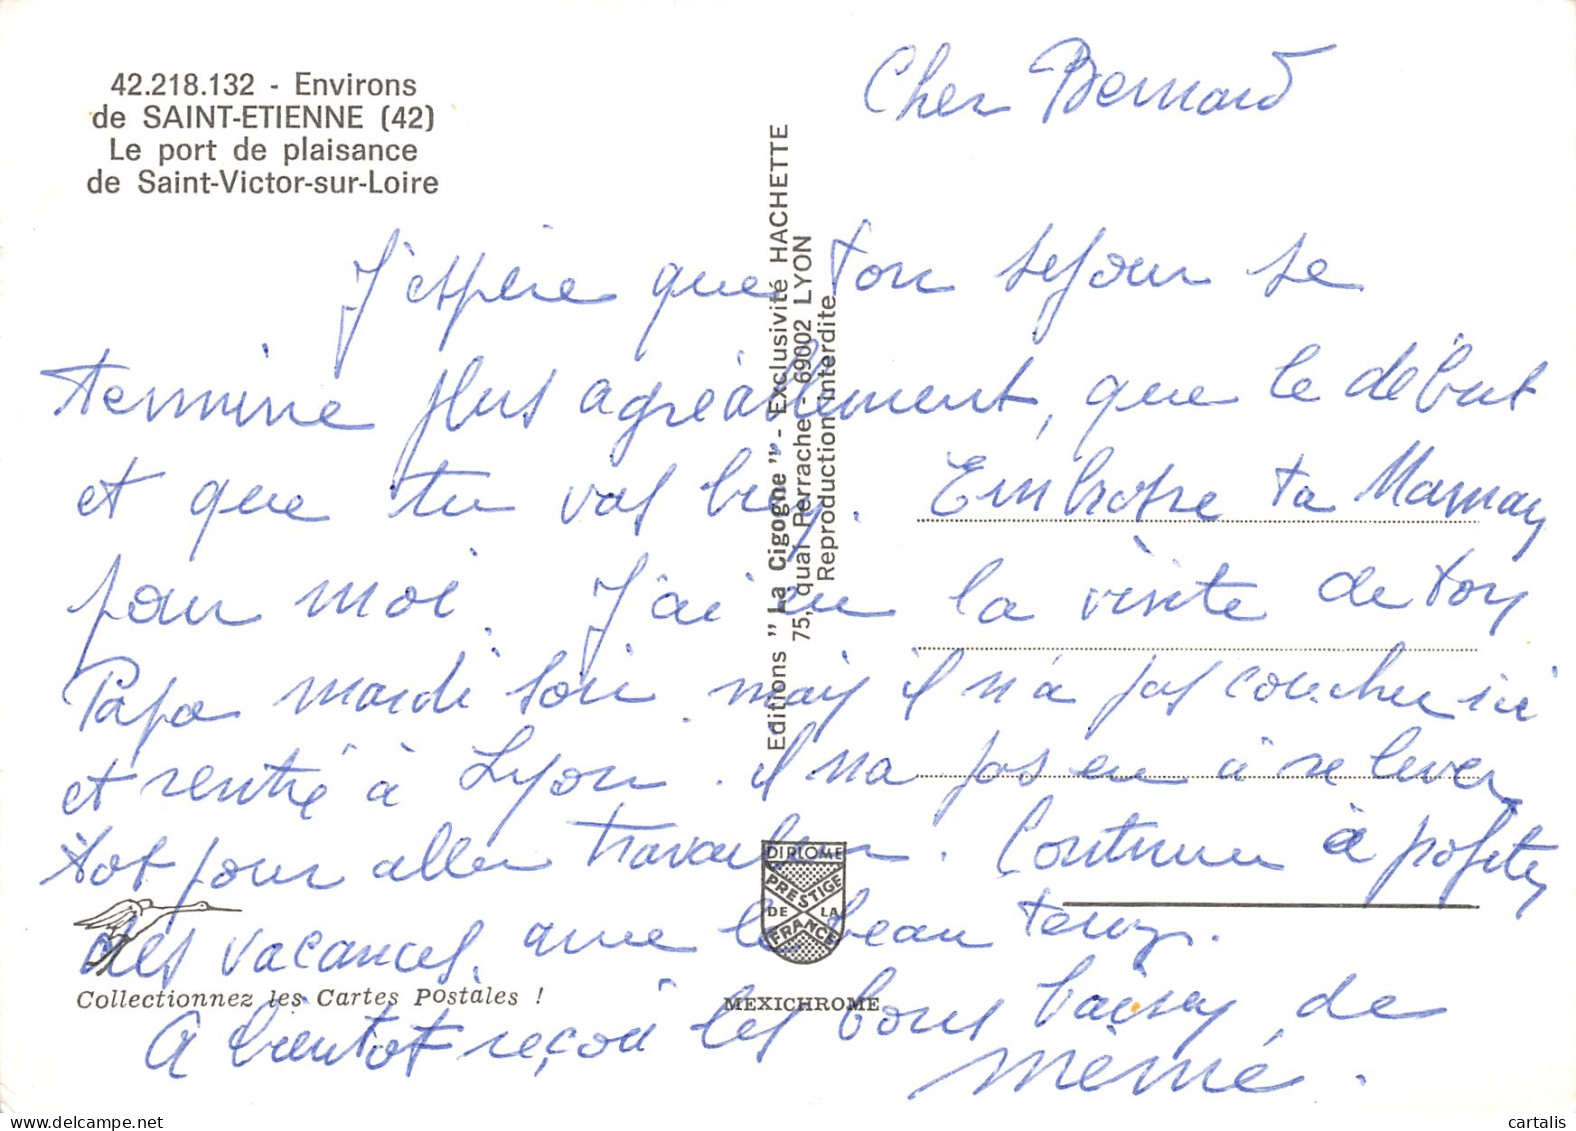 42.218.132 - Environs
de SAINT-ETIENNE (42)
Le port de plaisance
de Saint-Victor-sur-Loire
Cher Bernard
J'espère que ton sejour se
termine plus agréablement, que le début
et que tu vas bien. Embrasse ta Maman
pour moi. J'ai eu la visite de ton
Papa mardi soir mais il n'a pas coucher ici
et rentré à Lyon. il n'a pas eu à se lever
tot pour aller travailler. Continue à profiter
des vacances, avec le beau temps.
A bientot reçoit les bons baisers de
mémé.
Editions "La Cigogne" - Exclusivité HACHETTE
75, quai Perrache - 69002 LYON
Reproduction interdite
DIPLOME
PRESTIGE
DE LA
FRANCE
Collectionnez les Cartes Postales !
MEXICHROME
cartalis